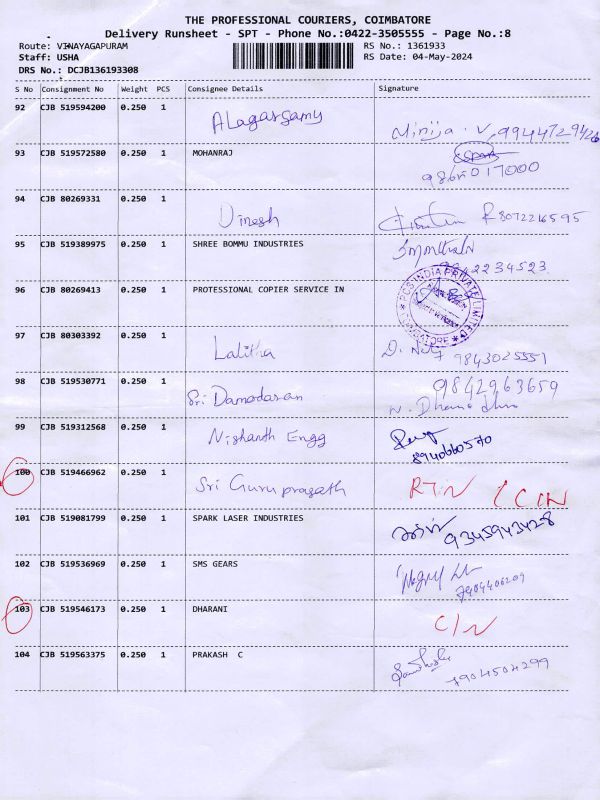 THE PROFESSIONAL COURIERS, COIMBATORE
Delivery Runsheet - SPT - Phone No.:0422-3505555 - Page No.:8
Route: VINAYAGAPURAM RS No.: 1361933
Staff: USHA RS Date: 04-May-2024
DRS No.: DCJB136193308
S No Consignment No Weight PCS Consignee Details Signature
92 CJB 519594200 0.250 1 Alagarsamy Minija. V. 9944729426
93 CJB 519572580 0.250 1 MOHANRAJ
9865017000
94 CJB 80269331 0.250 1 Dinesh 8072216595
95 CJB 519389975 0.250 1 SHREE BOMMU INDUSTRIES
2234523
96 CJB 80269413 0.250 1 PROFESSIONAL COPIER SERVICE IN PCS INDIA PRIVATE LIMITED COIMBATORE
97 CJB 80303392 0.250 1 Lalitha D. 9843025551
98 CJB 519530771 0.250 1 Sri Damodaran 9842963659
N.
99 CJB 519312568 0.250 1 Nishanth Engg
8940660570
100 CJB 519466962 0.250 1 Sri Guruprasath RTN
101 CJB 519081799 0.250 1 SPARK LASER INDUSTRIES 9345943428
102 CJB 519536969 0.250 1 SMS GEARS
7904406209
103 CJB 519546173 0.250 1 DHARANI C/N
104 CJB 519563375 0.250 1 PRAKASH C
7904504299